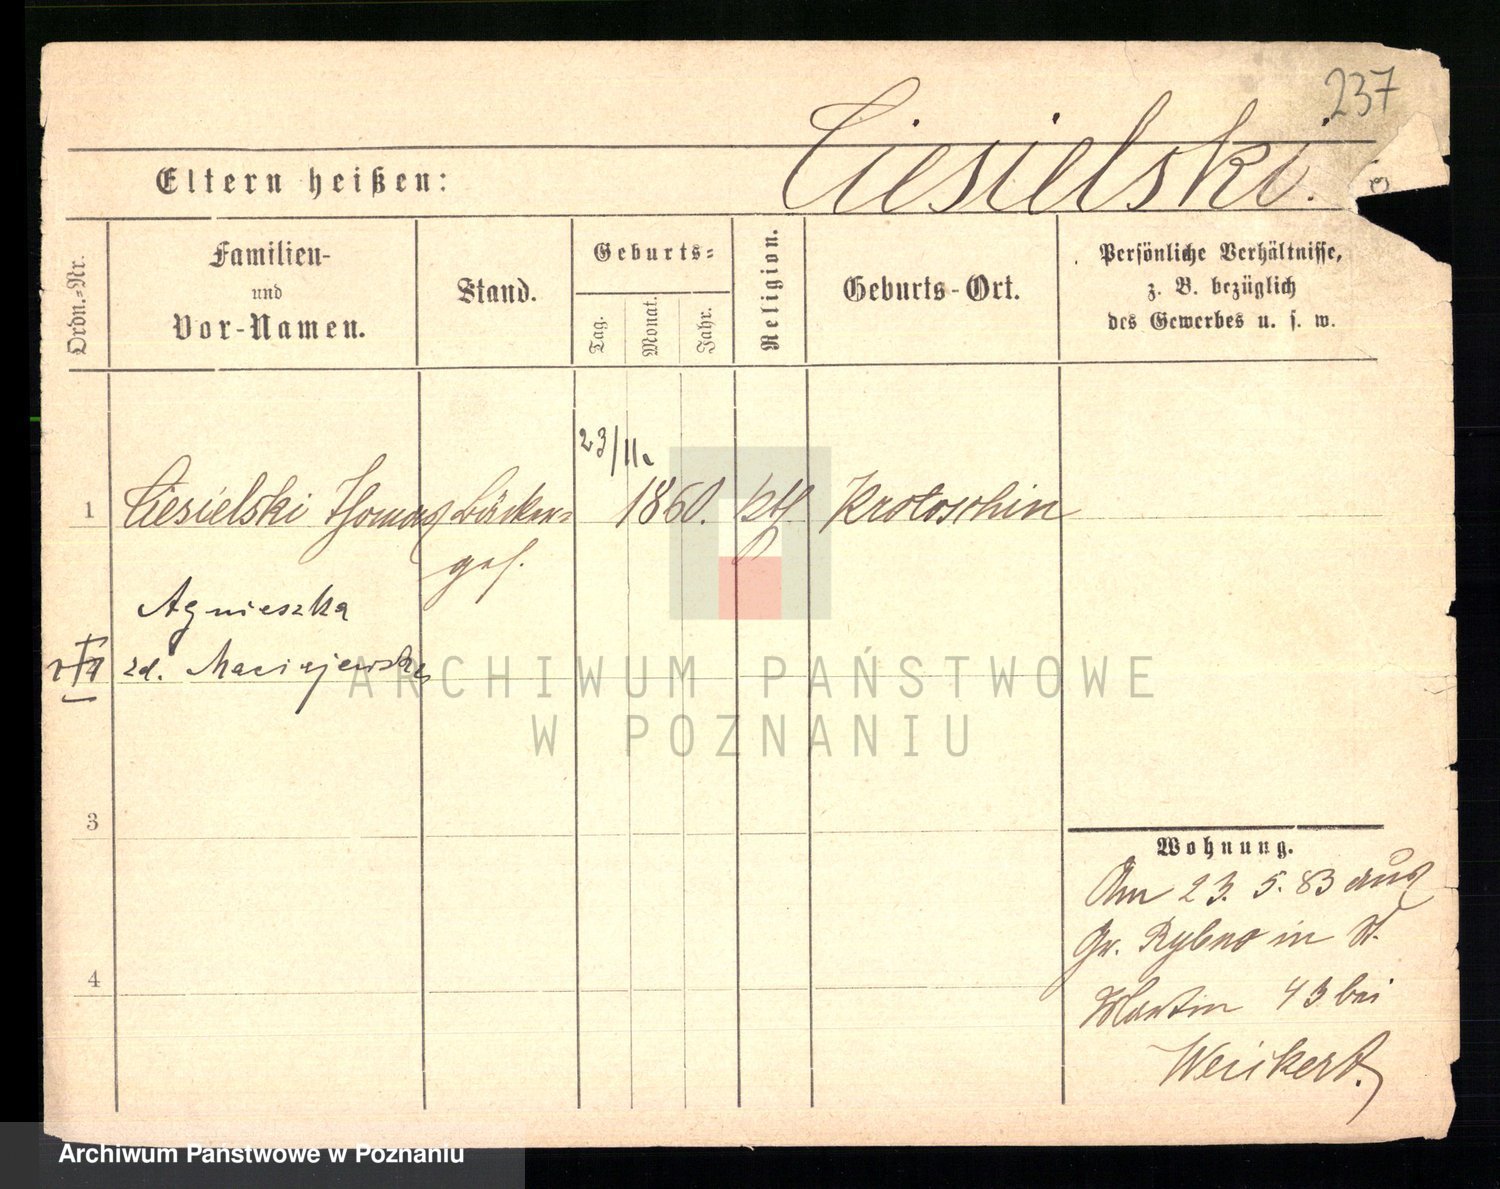 237
Ciesielski.
Eltern heißen:
Ordn.-Nr.
Familien-
und
Vor-Namen.
Stand.
Geburts-
Tag.
Monat.
Jahr.
Religion.
Geburts-Ort.
Persönliche Verhältnisse,
z. B. bezüglich
des Gewerbes u. s. w.
23/11.
1 Ciesielski Thomas Bäcker- 1860. kth. Krotoschin
ges.
Agnieszka
zd. Maciejewska
ARCHIWUM PAŃSTWOWE
W POZNANIU
3
4
Wohnung.
Am 23. 5. 83 aus
Gr. Rybno in St.
Martin 43 bei
Weickert.
Archiwum Państwowe w Poznaniu